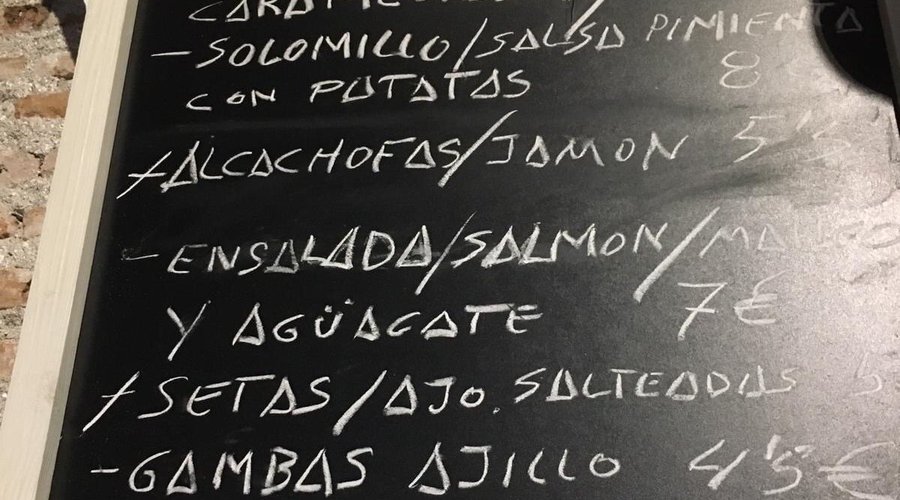 - SOLOMILLO/SALSA PIMIENTA
CON PATATAS 8
ALCACHOFAS/JAMON 5'5
- ENSALADA/SALMON/MANGO
Y AGÜACATE 7€
SETAS/AJO. SALTEADAS 5
- GAMBAS AJILLO 4'5€